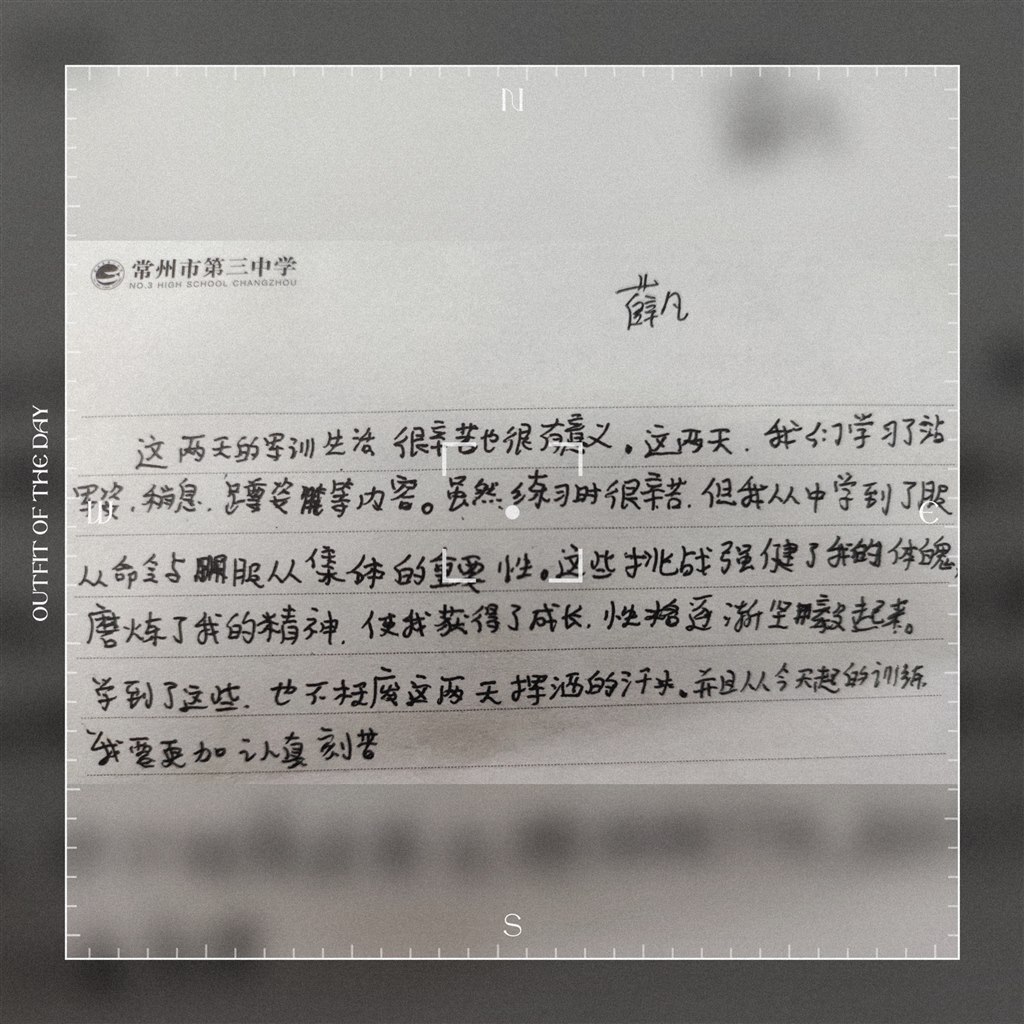 N
常州市第三中学
NO.3 HIGH SCHOOL CHANGZHOU
薛凡
OUTFIT OF THE DAY
这两天的军训生活很辛苦也很有意义。这两天，我们学习了站
军姿，稍息，蹲姿等内容。虽然练习时很辛苦，但我从中学到了服
W
E
从命令与服从集体的重要性。这些挑战强健了我的体魄，
磨炼了我的精神，使我获得了成长，性格逐渐坚毅起来。
学到了这些，也不枉废这两天挥洒的汗水。并且从今天起的训练，
我要更加认真刻苦
S